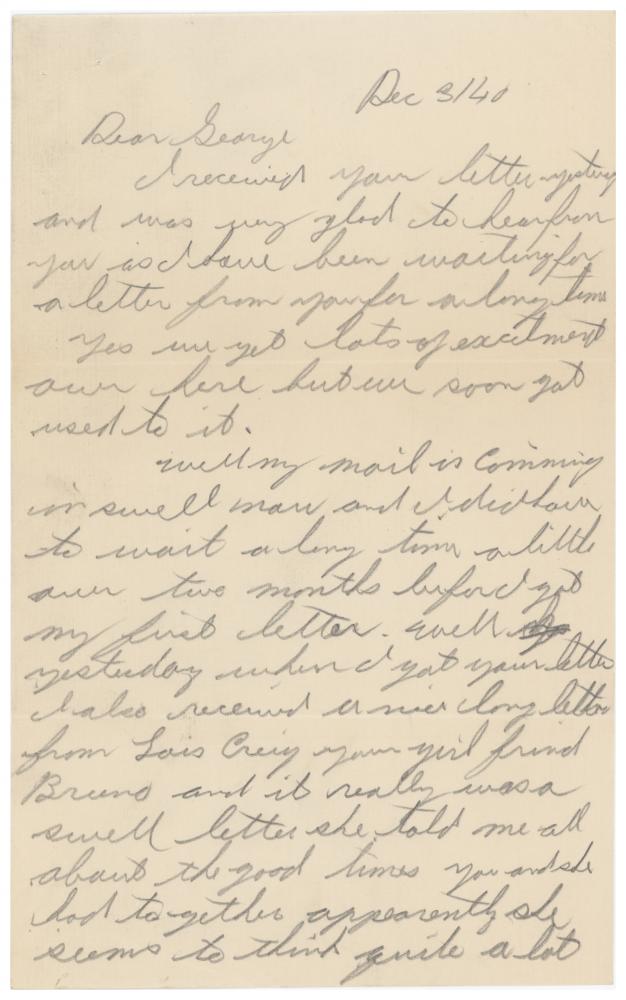 Dec 3/40
Dear George
I received your letter yesterday
and was very glad to hear from
you as I have been waiting for
a letter from you for a long time
Yes we get lots of excitment
over here but we soon got
used to it.
well my mail is Comming
in swell now and I did have
to wait a long time a little
over two months before I got
my first letter. well
yesterday when I got your letter
I also received a nice long letter
from Lois Creig your girl frind
Bruno and it really was a
swell letter she told me all
about the good times you and she
had together apparently she
seems to think quite a lot